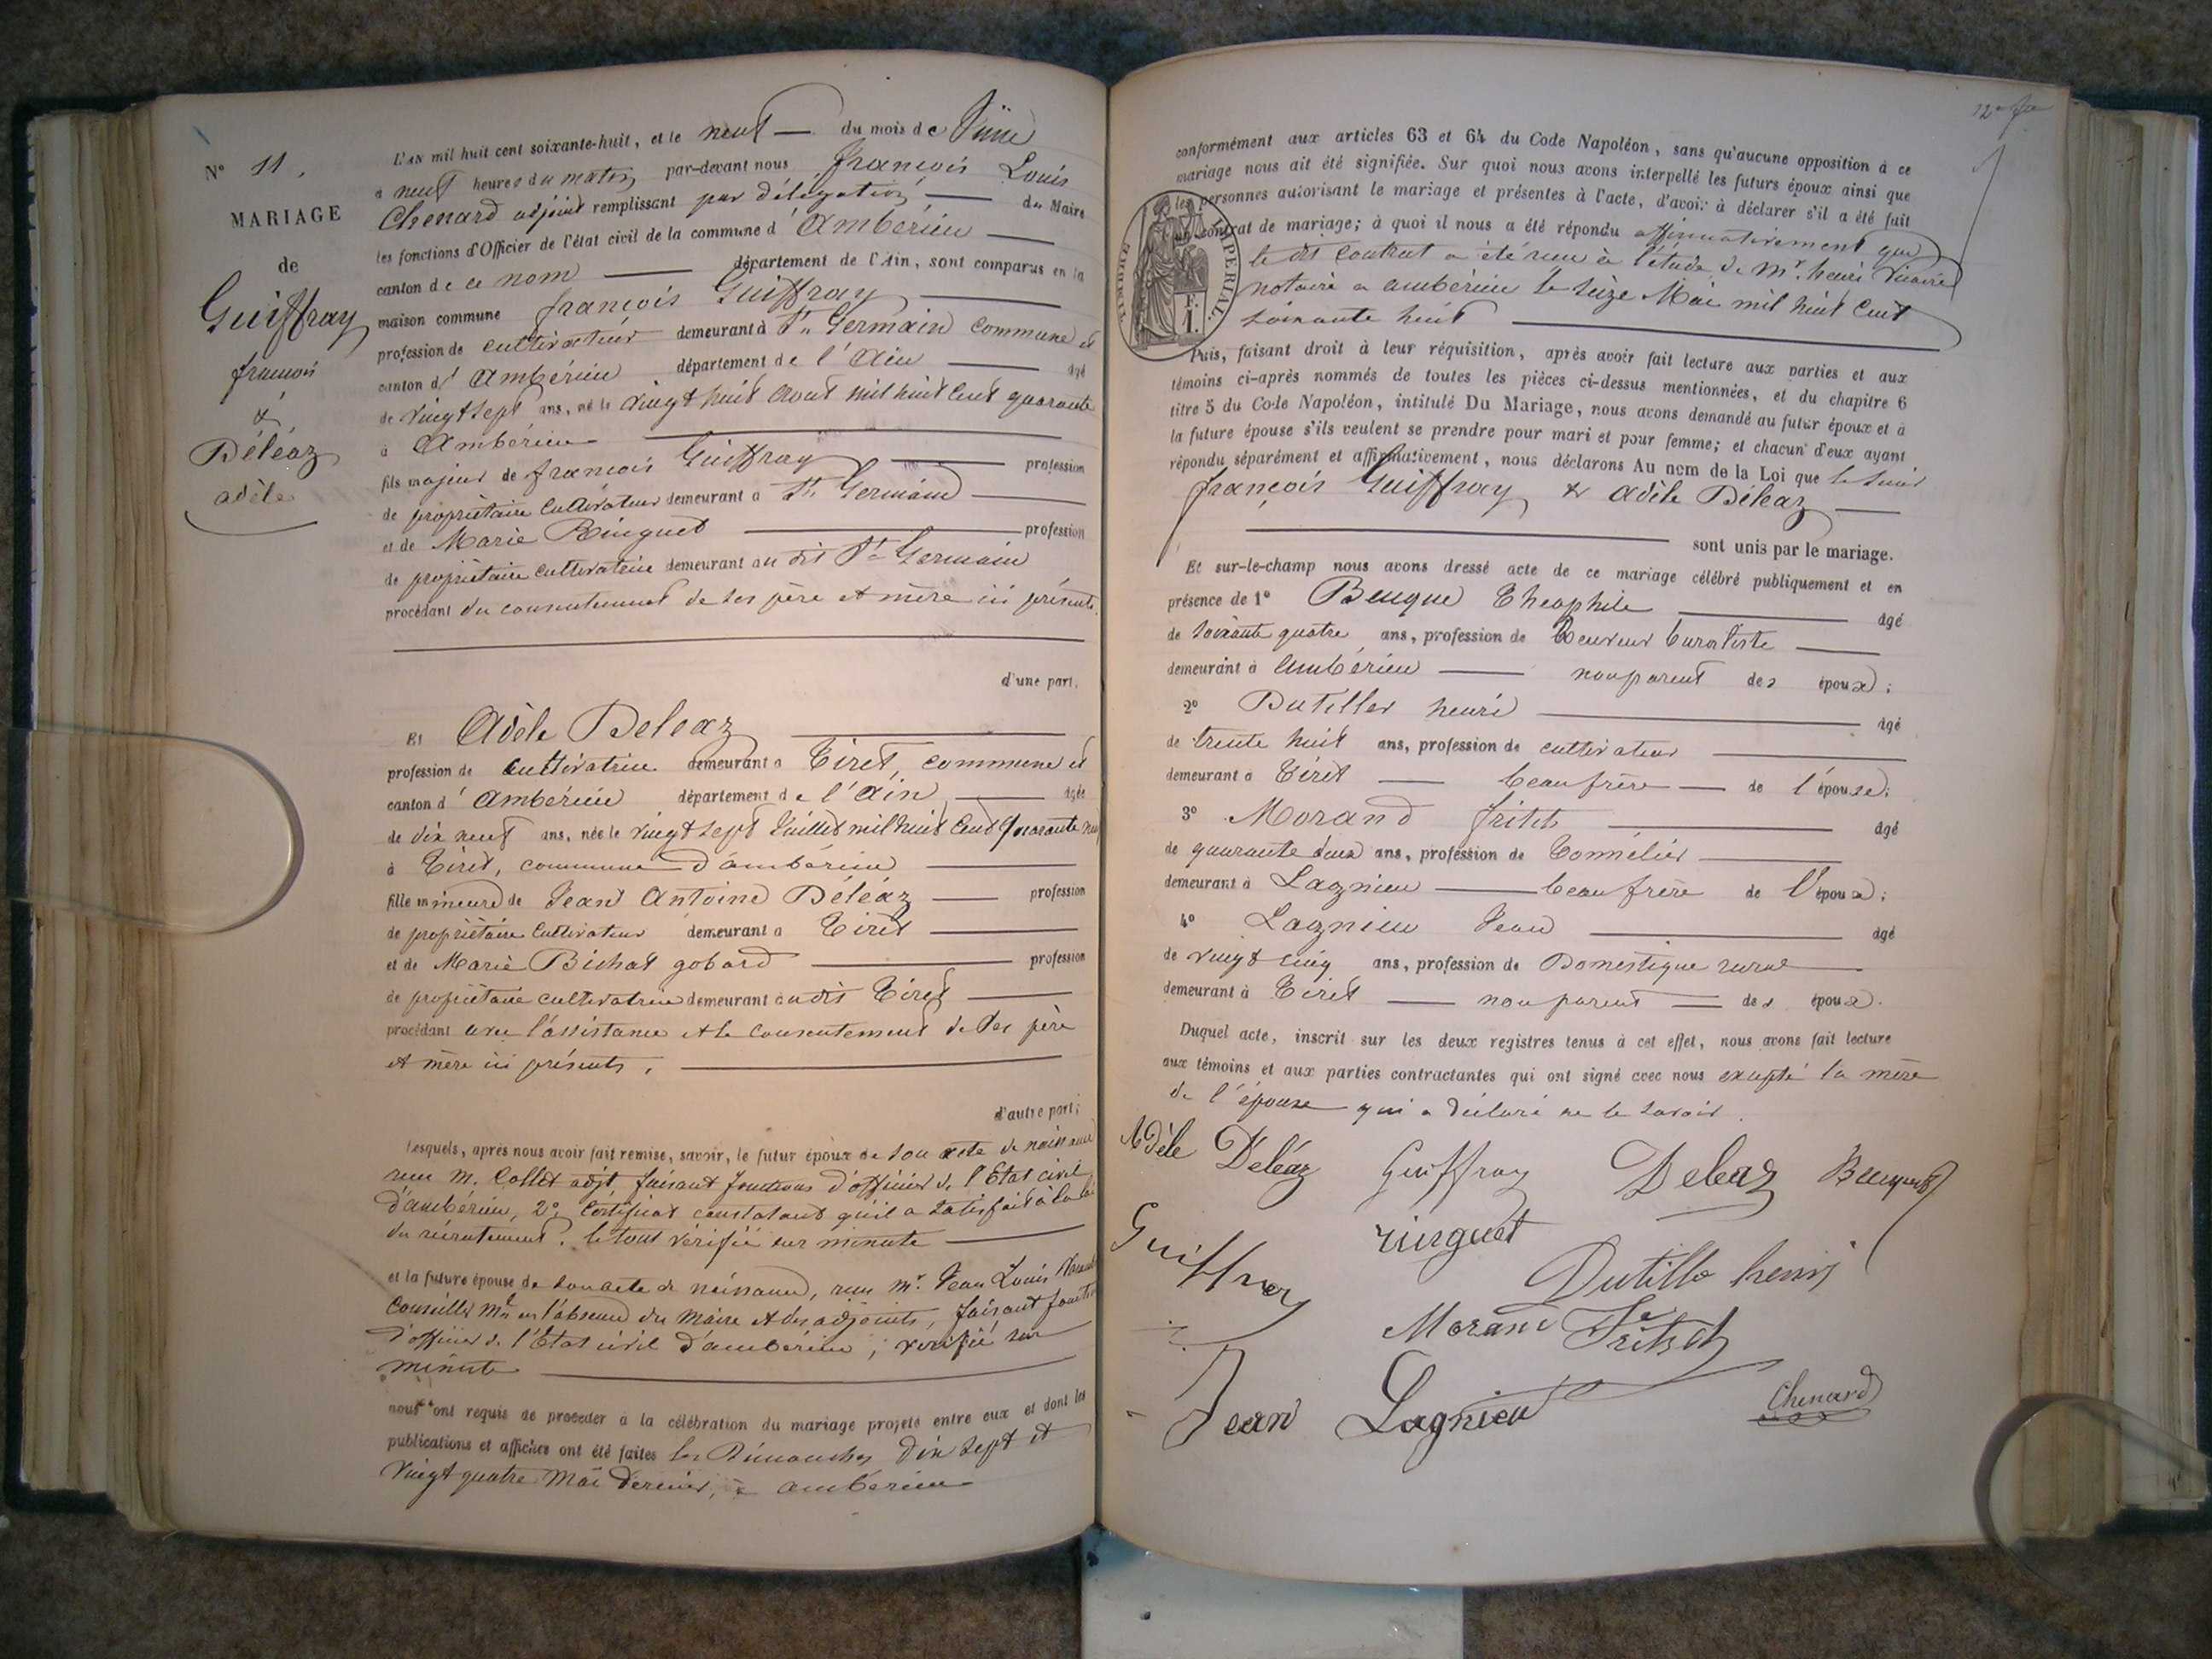 N° 11.
MARIAGE
de
Guiffray
françois
&
Déléaz
adèle
L'AN mil huit cent soixante-huit, et le neuf du mois de Juin
à neuf heures du matin par-devant nous françois Louis
Chenard adjoint remplissant par délégation du Maire
les fonctions d'Officier de l'état civil de la commune d'Ambérieu
canton de ce nom département de l'Ain, sont comparus en la
maison commune françois Guiffray
profession de cultivateur demeurant à St Germain commune et
canton d'Ambérieu département de l'Ain âgé
de vingt sept ans, né le vingt huit aout mil huit cent quarante
à Ambérieu
fils majeur de françois Guiffray profession
de propriétaire cultivateur demeurant à St Germain
et de Marie Ringuet profession
de propriétaire cultivatrice demeurant au dit St Germain
procédant du consentement de ses père et mère ici présents.
d'une part,
Et Adèle Deleaz
profession de cultivatrice demeurant à Tiret, commune et
canton d'Ambérieu département de l'Ain âgée
de dix neuf ans, née le vingt sept Juillet mil huit cent quarante
à Tiret, commune d'ambérieu
fille mineure de Jean Antoine Déléaz profession
de propriétaire cultivateur demeurant à Tiret
et de Marie Bichat gobard profession
de propriétaire cultivatrice demeurant au dit Tiret
procédant avec l'assistance et le consentement de ses père
et mère ici présents.
d'autre part;
Lesquels, après nous avoir fait remise, savoir, le futur époux de son acte de naissance
reçu M. Collet adjt faisant fonctions d'officier de l'Etat civil
d'ambérieu, 2° Certificat constatant qu'il a satisfait à la loi
du recrutement. le tout vérifié sur minute
et la future épouse de son acte de naissance, reçu Mr. Jean Louis
Conseiller Ml en l'absence du Maire et des adjoints, faisant fonction
d'officier de l'Etat civil d'ambérieu; vérifié sur
minute
nous ont requis de procéder à la célébration du mariage projeté entre eux et dont les
publications et affiches ont été faites les Dimanches dix sept et
vingt quatre Mai dernier, à ambérieu
conformément aux articles 63 et 64 du Code Napoléon, sans qu'aucune opposition à ce
mariage nous ait été signifiée. Sur quoi nous avons interpellé les futurs époux ainsi que
les personnes autorisant le mariage et présentes à l'acte, d'avoir à déclarer s'il a été fait
contrat de mariage; à quoi il nous a été répondu affirmativement que
le dit contrat a été reçu à l'étude de Mr. henri
notaire à ambérieu le seize Mai mil huit cent
soixante huit
TIMBRE IMPERIAL.
Puis, faisant droit à leur réquisition, après avoir fait lecture aux parties et aux
témoins ci-après nommés de toutes les pièces ci-dessus mentionnées, et du chapitre 6
titre 5 du Code Napoléon, intitulé Du Mariage, nous avons demandé au futur époux et à
la future épouse s'ils veulent se prendre pour mari et pour femme; et chacun d'eux ayant
répondu séparément et affirmativement, nous déclarons Au nom de la Loi que le sieur
françois Guiffray & Adèle Déléaz
sont unis par le mariage.
Et sur-le-champ nous avons dressé acte de ce mariage célébré publiquement et en
présence de 1° Beuque Theophile âgé
de soixante quatre ans, profession de buraliste
demeurant à ambérieu non parent des époux;
2° Dutiller henri âgé
de trente huit ans, profession de cultivateur
demeurant à Tiret beaufrère de l'épouse;
3° Morand fritch âgé
de quarante deux ans, profession de Tonnelier
demeurant à Lagnieu beaufrère de l'époux;
4° Lagnieu Jean âgé
de vingt cinq ans, profession de Domestique rural
demeurant à Tiret non parent des époux.
Duquel acte, inscrit sur les deux registres tenus à cet effet, nous avons fait lecture
aux témoins et aux parties contractantes qui ont signé avec nous excepté la mère
de l'épouse qui a déclaré ne le savoir.
Adèle Déléaz Guiffray Deleaz
Guiffray ringuet
Dutille henri
Morand Fritsch
Jean Lagnieu Chenard